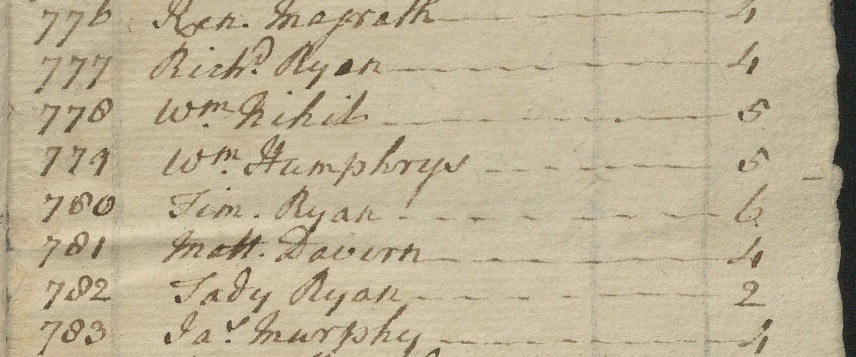 776 Ken. Magrath 4
777 Richd. Ryan 4
778 Wm. Nihil 5
779 Wm. Humphrys 5
780 Tim. Ryan 6
781 Matt. Davern 4
782 Tady Ryan 2
783 Jas. Murphy 4